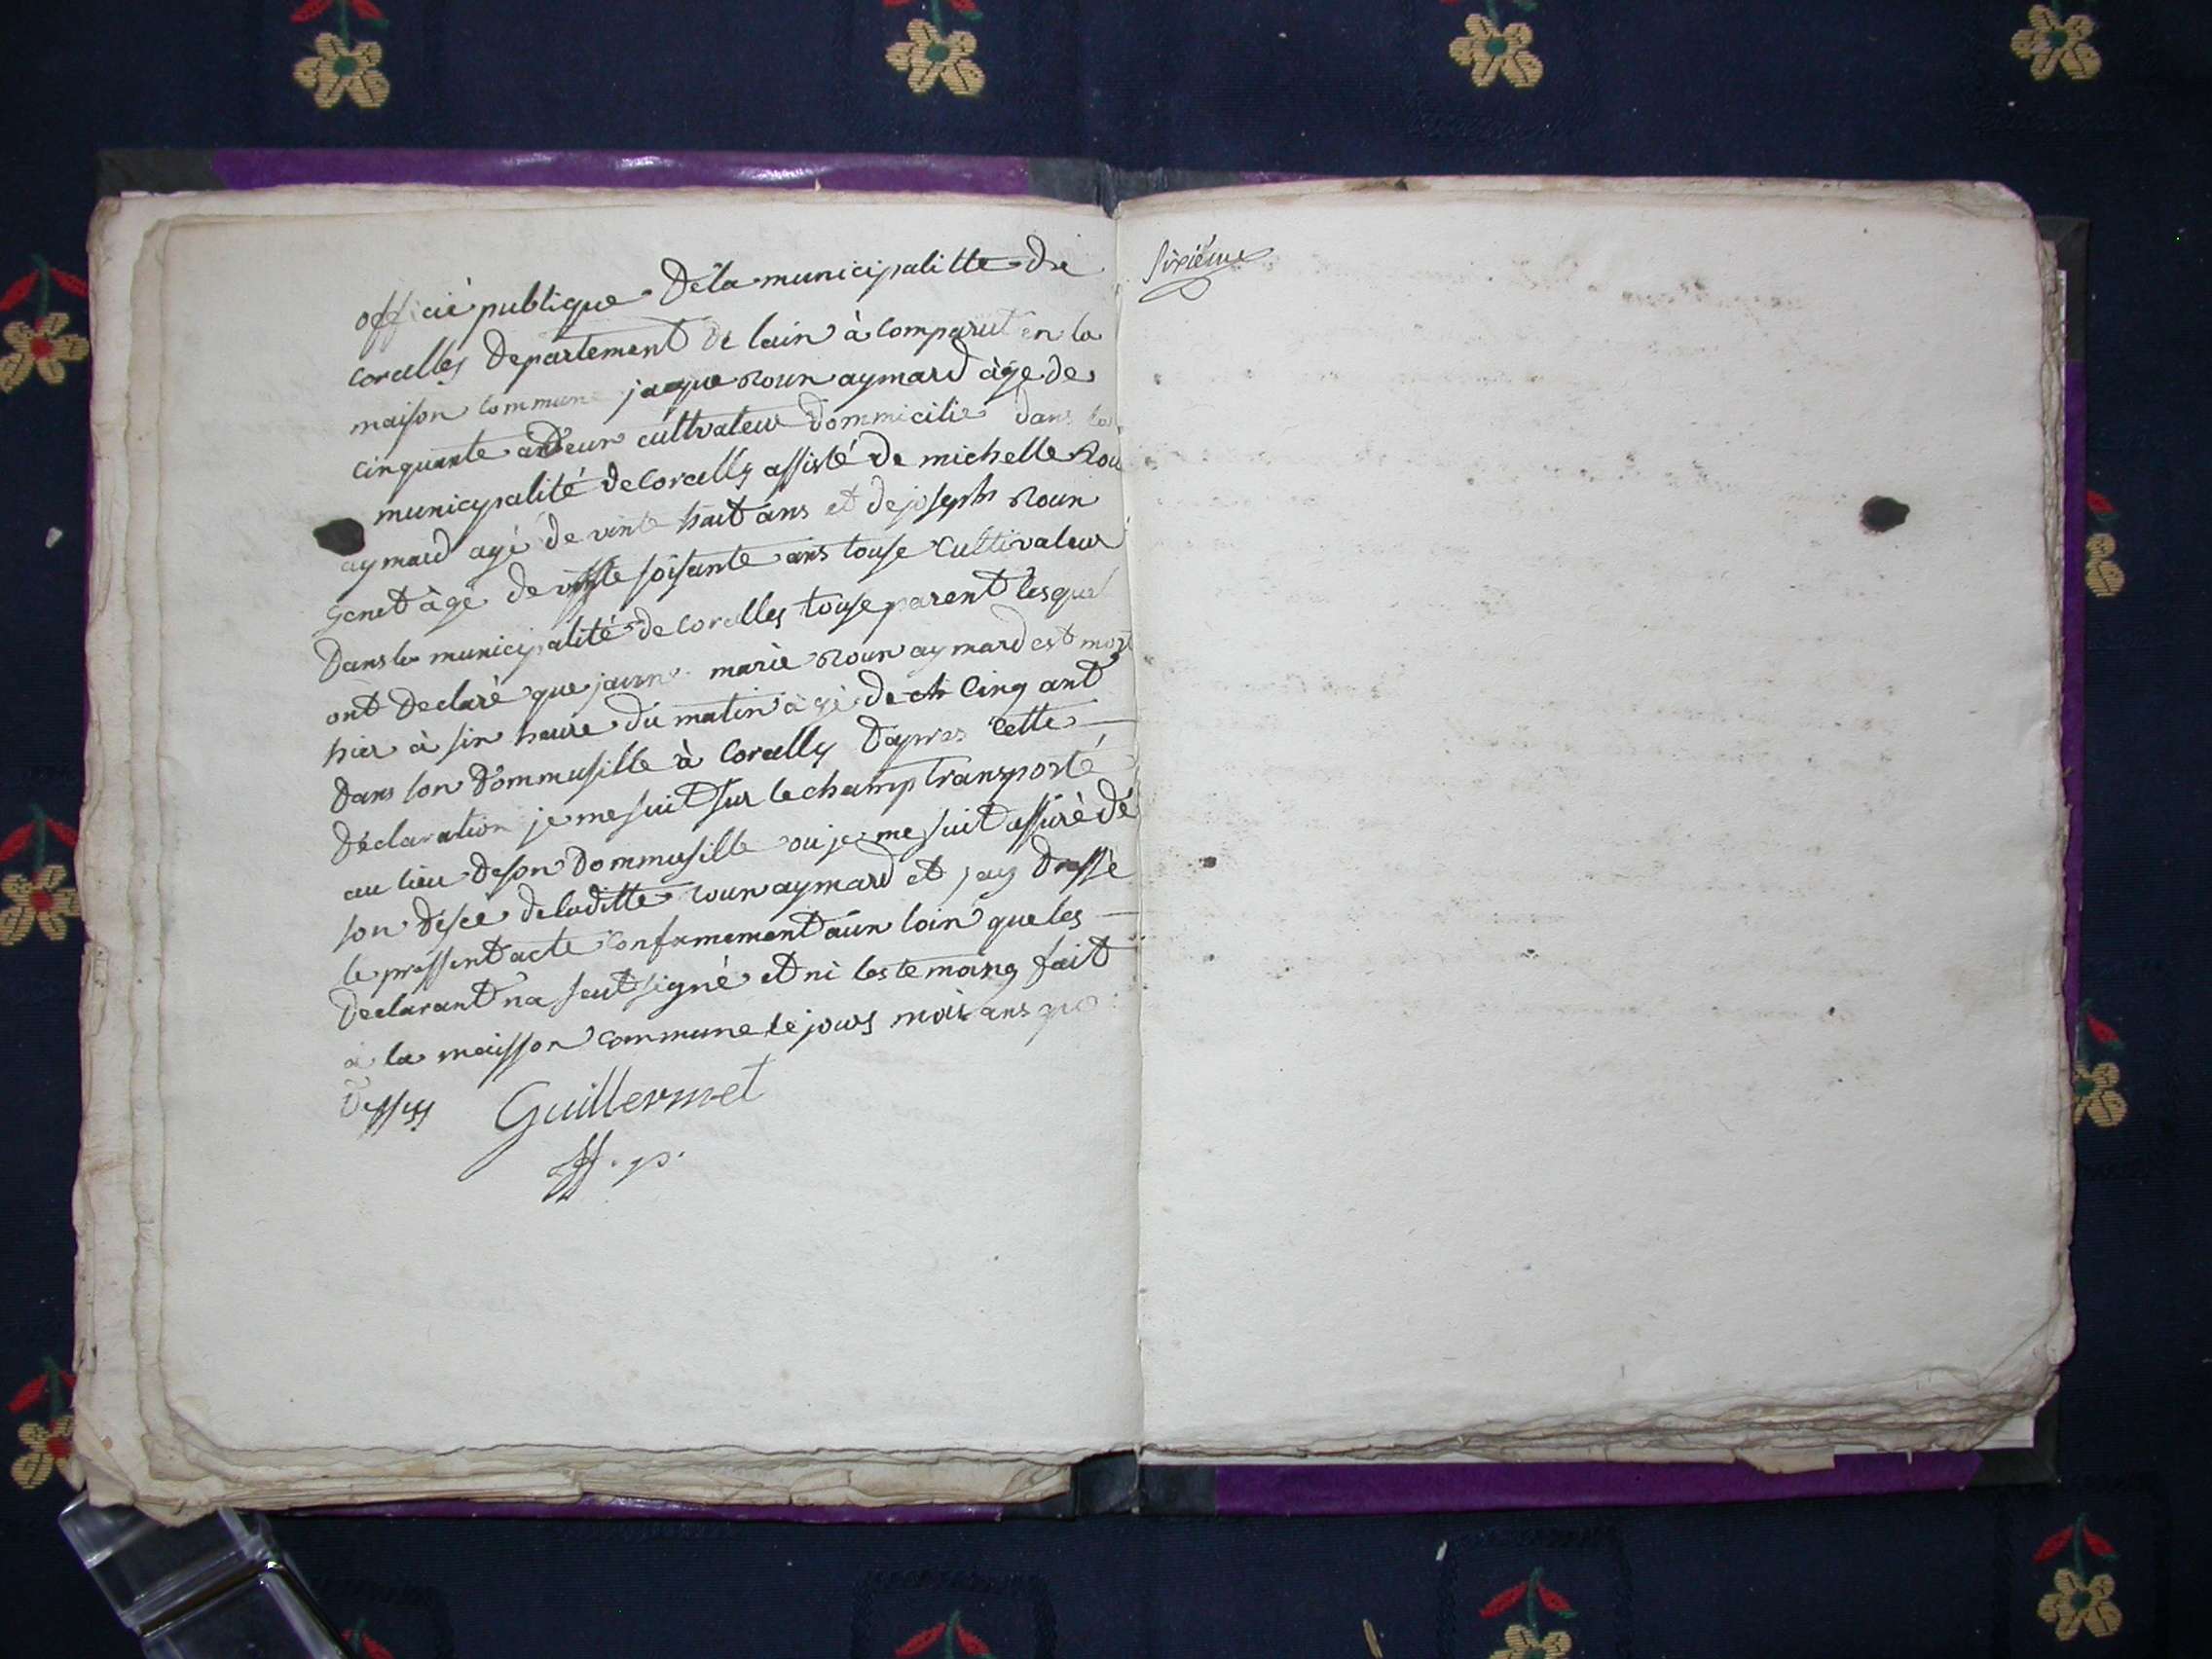 officié publique de la municipalitte de
Corcelles departement de lain à comparut en la
maison commune jacque Roux aymard àge de
cinquante cultvateur dommicilie dans la
municipalité de Corcelles assisté de michelle Rou
aymard agé de vinte huit ans et de joseph Roux
genet àgé de soisante ans touse cultivateur
dans la municipalité de Corcelles touse parent lesquel
ont declaré que marie Roux aymard est mort
hier à six heure du matin àgé de cinq ant
dans son dommusille à Corcelles dapres cette
déclaration je me suit sur le champ transporté
au lieu de son dommusille ou je me suit assuré dé
son désce de laditte roux aymard et jay dressé
le pressent acte conformement aux loix que les
declarant na seut signé et ni les temoing fait
à la maisson commune le jours mois ans que
dessus Guillermet
off. p.
sixième